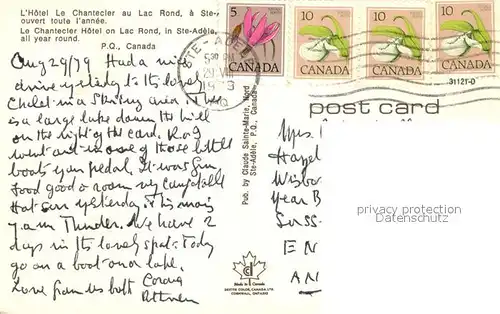 L'Hôtel Le Chantecler au Lac Rond, à Ste-
ouvert toute l'année.
Le Chantecler Hôtel on Lac Rond, in Ste-Adèle,
all year round.
P.Q., Canada
Aug 29/79 Had a nice
drive yesterday to the lovely
Chalet in a Skiing area. There
is a large lake down the hill
on the right of the card. R & J
went out in one of those little
boats you pedal. It was fun,
food good & room very comfortable
Hot sun yesterday & this morn
7 a.m. Thunder. We have 2
days in this lovely spot. Today
go on a boat on our lake.
Love from us both
Pub. by Claude Sainte-Marie, Nord
Ste-Adèle, P.Q., Canada
Made in Canada
DEXTER COLOR CANADA LTD.
CORNWALL, ONTARIO
5
CANADA
10
CANADA
10
CANADA
10
CANADA
STE-ADÈLE
31121-D
post card
Mrs.
Hazel
Wisbo
Year B
Suss
EN
AN
privacy protection
Datenschutz